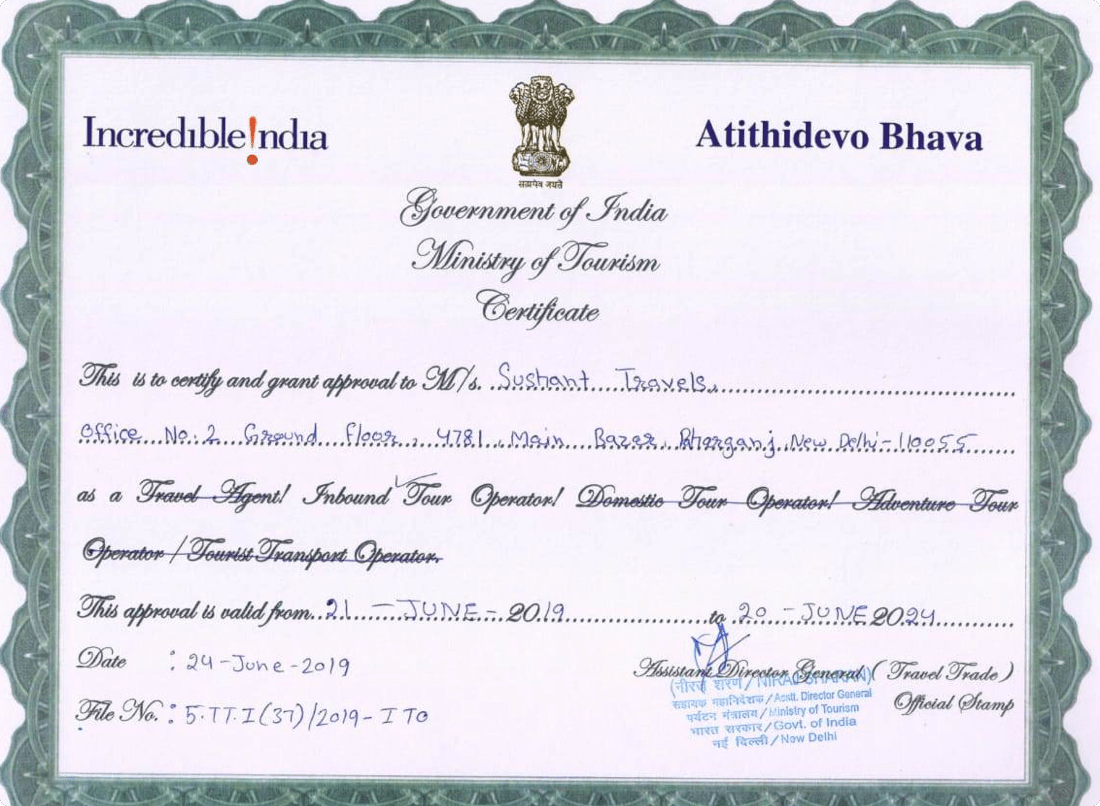 Incredible!ndia
Atithidevo Bhava
सत्यमेव जयते
Government of India
Ministry of Tourism
Certificate
This is to certify and grant approval to M/s. Sushant Travels,
Office No. 2 Ground Floor, 4781, Main Bazar, Pharganj, New Delhi-110055
as a Travel Agent/ Inbound Tour Operator/ Domestic Tour Operator/ Adventure Tour
Operator / Tourist Transport Operator.
This approval is valid from 21 - JUNE - 2019 to 20 - JUNE 2024
Date : 24-June-2019
Assistant Director General ( Travel Trade )
File No. : 5.TT.I(37)/2019- ITO
Official Stamp
(नीरज शरण / NIRAJ SHARAN)
सहायक महानिदेशक / Asstt. Director General
पर्यटन मंत्रालय / Ministry of Tourism
भारत सरकार / Govt. of India
नई दिल्ली / New Delhi